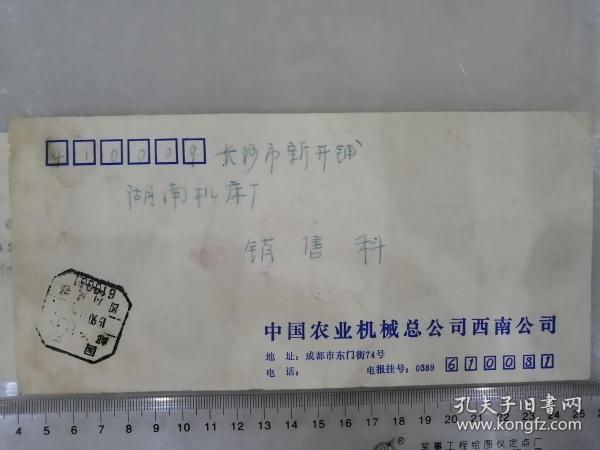 410009 长沙市新开铺
湖南机床厂
销售科
中国农业机械总公司西南公司
地 址: 成都市东门街74号
电 话: 电报挂号: 0389 610031
4 5 6 7 8 9 10 11 12 13 14 15 16 17 18 19 20 21 22 23 24 25
军事工程绘图仪定点厂
孔夫子旧书网
www.kongfz.com